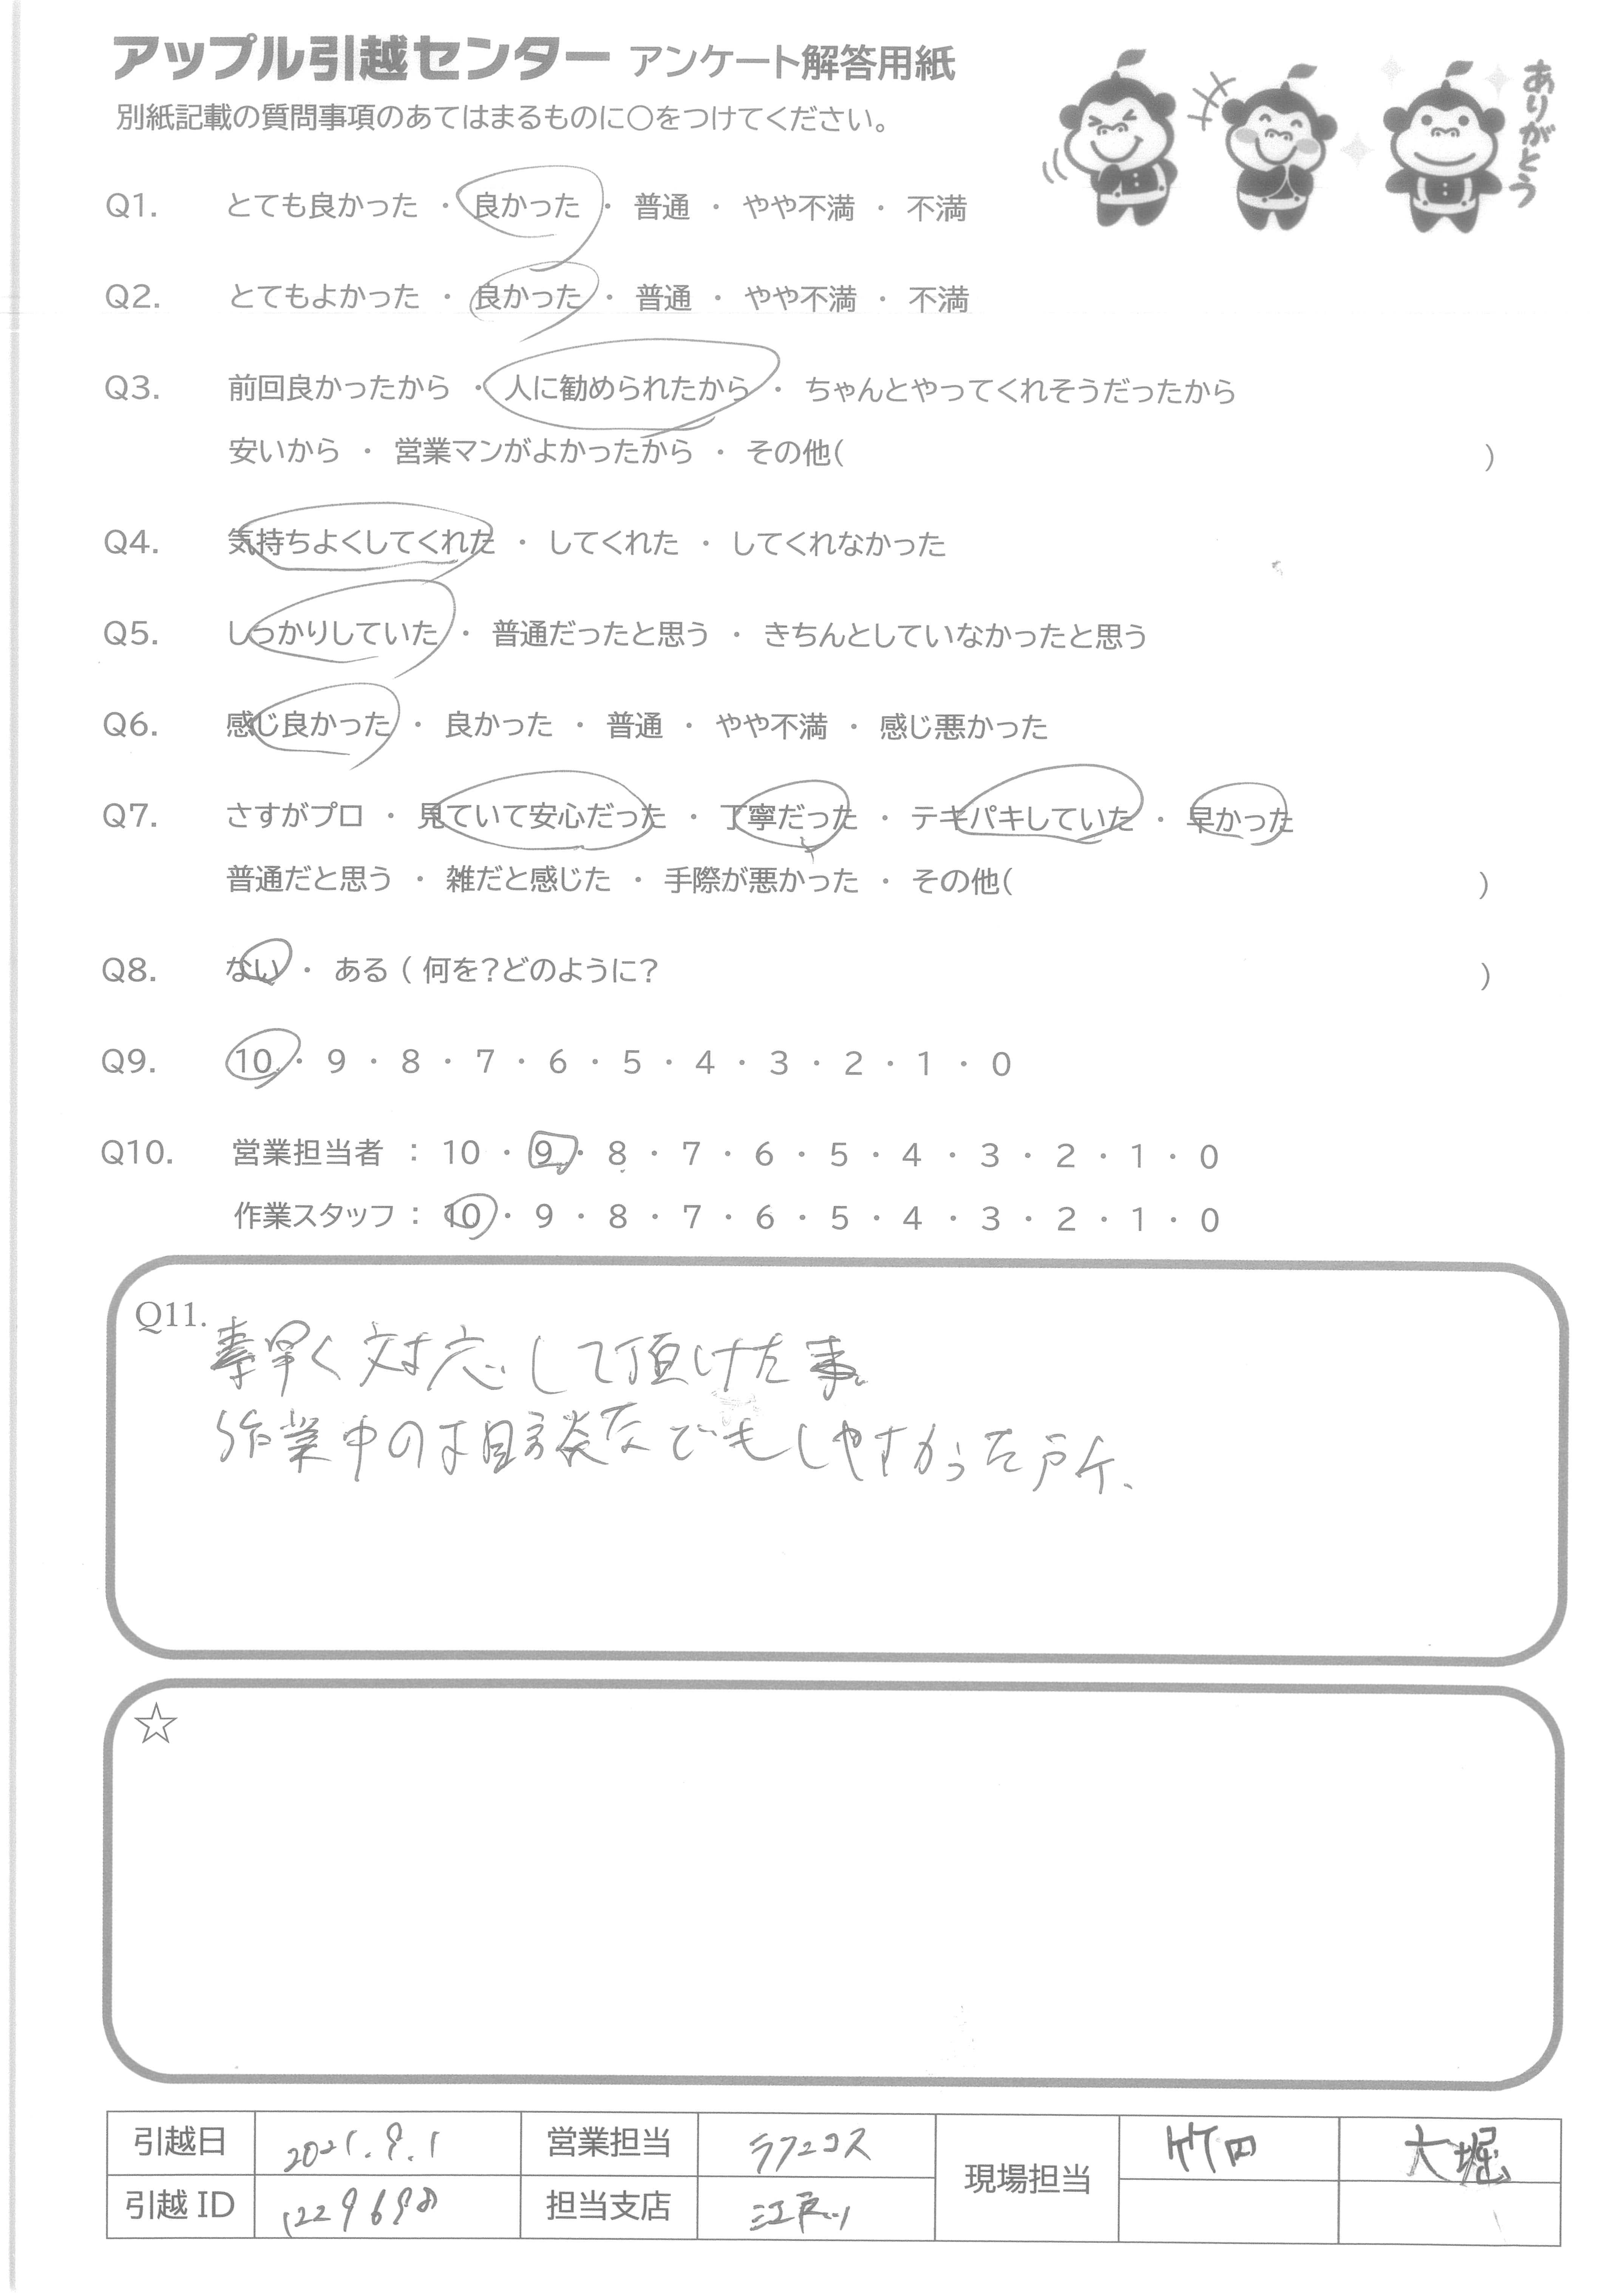 アップル引越センター アンケート解答用紙
別紙記載の質問事項のあてはまるものに○をつけてください。
ありがとう
Q1. とても良かった ・ 良かった ・ 普通 ・ やや不満 ・ 不満
Q2. とてもよかった ・ 良かった ・ 普通 ・ やや不満 ・ 不満
Q3. 前回良かったから ・ 人に勧められたから ・ ちゃんとやってくれそうだったから
安いから ・ 営業マンがよかったから ・ その他( )
Q4. 気持ちよくしてくれた ・ してくれた ・ してくれなかった
Q5. しっかりしていた ・ 普通だったと思う ・ きちんとしていなかったと思う
Q6. 感じ良かった ・ 良かった ・ 普通 ・ やや不満 ・ 感じ悪かった
Q7. さすがプロ ・ 見ていて安心だった ・ 丁寧だった ・ テキパキしていた ・ 早かった
普通だと思う ・ 雑だと感じた ・ 手際が悪かった ・ その他( )
Q8. ない ・ ある ( 何を?どのように? )
Q9. 10 ・ 9 ・ 8 ・ 7 ・ 6 ・ 5 ・ 4 ・ 3 ・ 2 ・ 1 ・ 0
Q10. 営業担当者 : 10 ・ 9 ・ 8 ・ 7 ・ 6 ・ 5 ・ 4 ・ 3 ・ 2 ・ 1 ・ 0
作業スタッフ : 10 ・ 9 ・ 8 ・ 7 ・ 6 ・ 5 ・ 4 ・ 3 ・ 2 ・ 1 ・ 0
Q11. 素早く対応して頂けた事。
作業中のま相談などもしやすかった所、
☆
引越日 2021.9.1 営業担当 ラフコス 現場担当 竹田 大堀
引越 ID 1229698 担当支店 江戸川